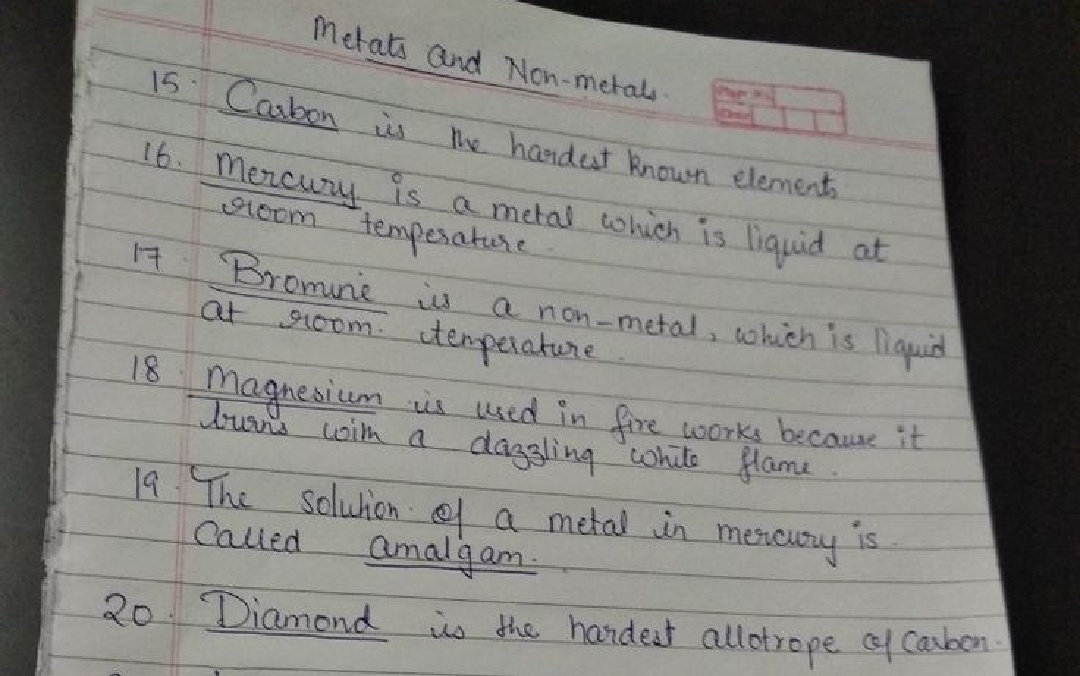 Metals and Non-metals.
15. Carbon is the hardest known element
16. Mercury is a metal which is liquid at
room temperature.
17. Bromine is a non-metal, which is liquid
at room. temperature.
18. Magnesium is used in fire works because it
burns with a dazzling white flame.
19. The solution of a metal in mercury is.
Called amalgam.
20. Diamond is the hardest allotrope of Carbon.